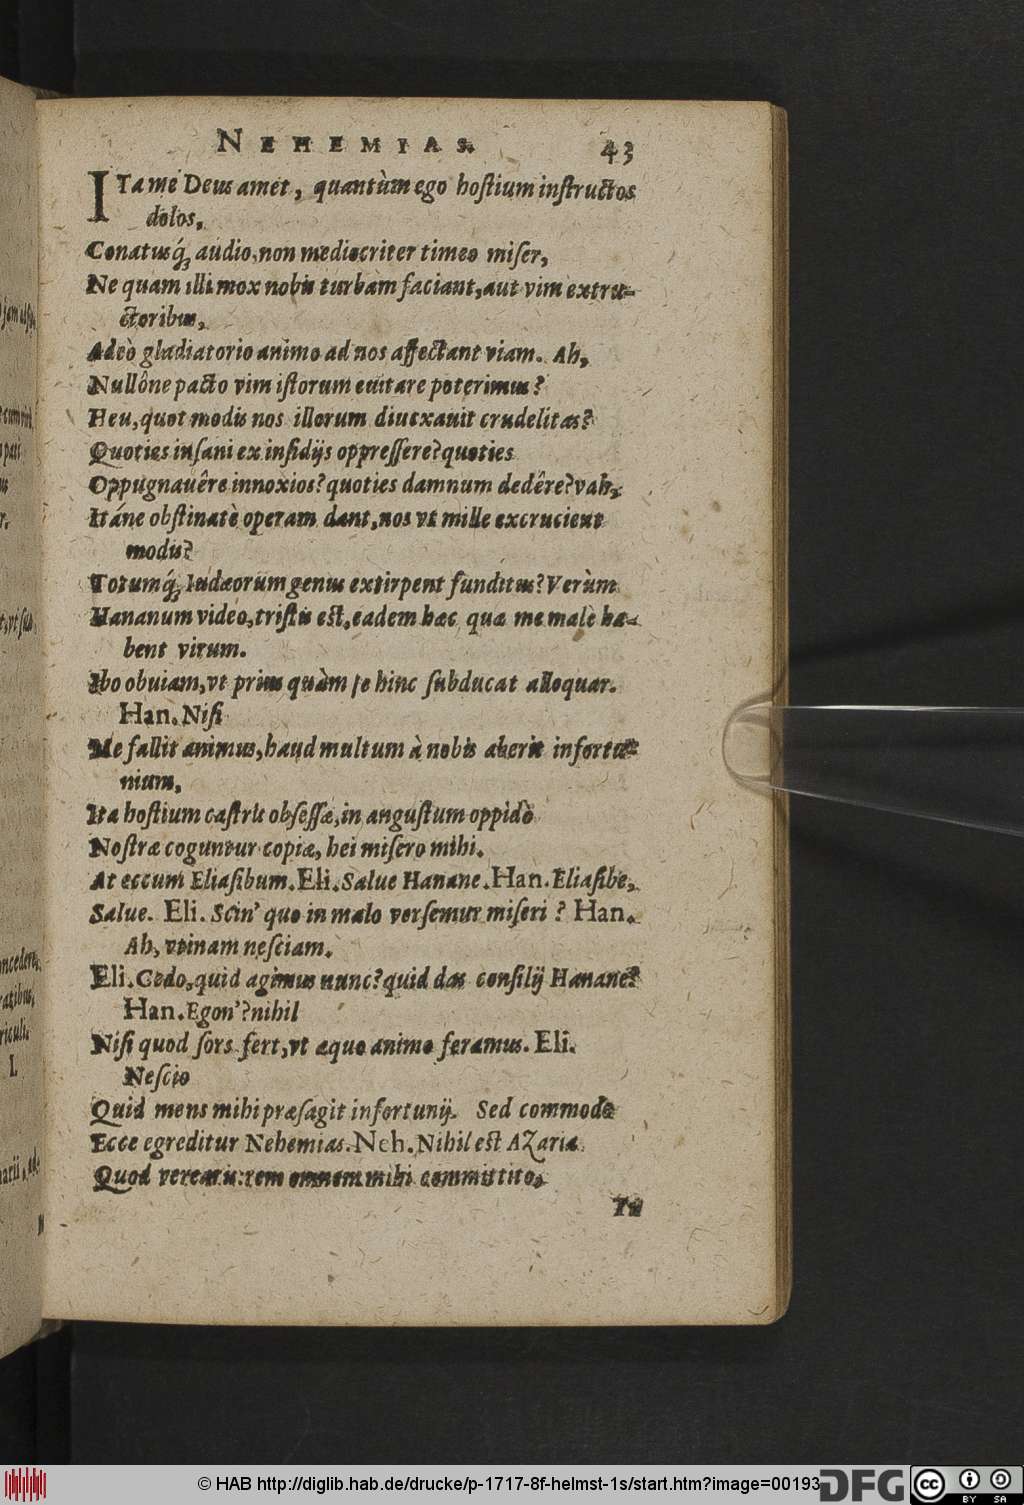 NEHEMIAS. 43
ITa me Deus amet, quantùm ego hostium instructos
dolos,
Conatusq́; audio, non mediocriter timeo miser,
Ne quam illi mox nobis turbam faciant, aut vim extru-
ctoribus,
Adeò gladiatorio animo ad nos affectant viam. Ah,
Nullône pacto vim istorum euitare poterimus?
Heu, quot modis nos illorum diuexauit crudelitas?
Quoties insani ex insidijs oppressere? quoties
Oppugnauêre innoxios? quoties damnum dedêre? vah,
Itáne obstinatè operam dant, nos vt mille excrucient
modis?
Totumq́; Iudæorum genus extirpent funditus? Verùm
Hananum video, tristis est, eadem hæc quæ me malè ha-
bent virum.
Ibo obuiam, vt prius quàm se hinc subducat alloquar.
Han. Nisi
Me fallit animus, haud multum à nobis aberit infortu-
nium,
Ita hostium castris obsessæ, in angustum oppidò
Nostræ coguntur copiæ, hei misero mihi.
At eccum Eliasibum. Eli. Salue Hanane. Han. Eliasibe,
Salue. Eli. Scin' quo in malo versemur miseri? Han.
Ah, vtinam nesciam.
Eli. Cedo, quid agimus nunc? quid das consilij Hanane?
Han. Egon'? nihil
Nisi quod sors fert, vt æquo animo feramus. Eli.
Nescio
Quid mens mihi præsagit infortunij. Sed commodè
Ecce egreditur Nehemias. Neh. Nihil est Azaria
Quod vereari: rem omnem mihi committito,
Tu
© HAB http://diglib.hab.de/drucke/p-1717-8f-helmst-1s/start.htm?image=00193
DFG
cc BY SA